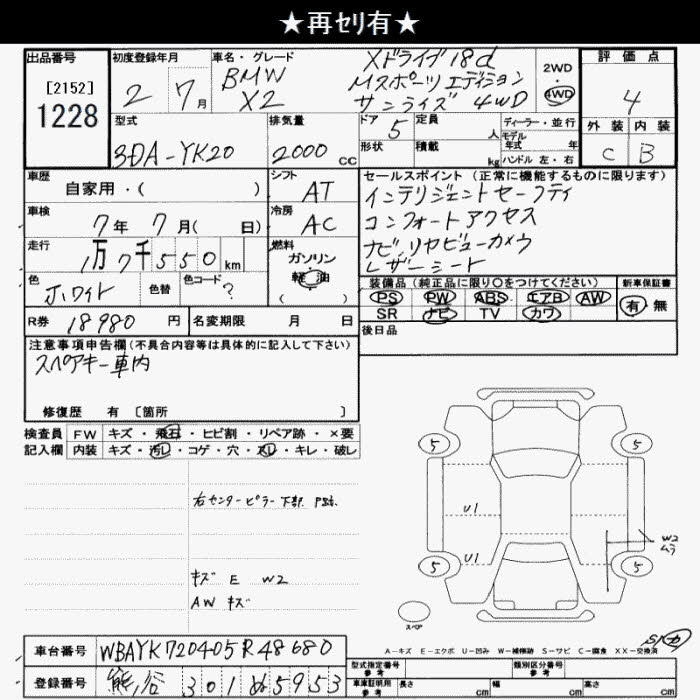 ★再セリ有★
出品番号
[2152]
1228
初度登録年月
2 7月
車名・グレード
BMW
X2
Xドライブ18d
Mスポーツエディション
サンライズ 4WD
2WD
4WD
評価点
4
外装 内装
C B
型式
3DA-YK20
排気量
2000 CC
ドア 5
定員 人
形状
積載 kg
ディーラー・並行
モデル
年式 年
ハンドル 左・右
車歴
自家用・( )
シフト AT
車検
7年 7月( 日)
冷房 AC
走行
1万7千550 km
燃料
ガソリン
軽油
( )
色
ホワイト
色替
色コード
?
R券 18980 円
名変期限 月 日
セールスポイント(正常に機能するものに限ります)
インテリジェントセーフティ
コンフォートアクセス
ナビ、リヤビューカメラ
レザーシート
装備品(純正品に限り〇をつけてください)
PS PW ABS エアB AW
SR ナビ TV カワ
新車保証書
有・無
後日品
注意事項申告欄(不具合内容等は具体的に記入して下さい)
スペアキー車内
修復歴 有 〔箇所 〕
検査員 FW キズ・飛石・ヒビ割・リペア跡・×要
記入欄 内装 キズ・汚レ・コゲ・穴・スレ・キレ・破レ
右センターピラー下部
キズ E W2
AW キズ
5 5
U1
U1
W2
ムラ
5 5
スペア
A-キズ E-エクボ U-凹み W-補修跡 S-サビ C-腐食 XX-交換済
車台番号 WBAYK720405R48680
登録番号 熊谷 301 ぬ 5953
型式指定番号
参考
類別区分番号
参考
車庫証明用
参考
長さ cm 幅 cm 高さ cm